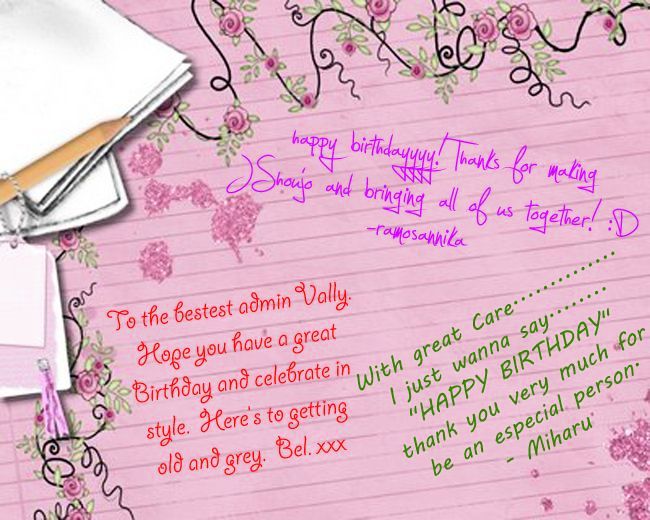 happy birthdayyyy! Thanks for making
JShoujo and bringing all of us together! :D
-ramosannika
To the bestest admin Vally.
Hope you have a great
Birthday and celebrate in
style. Here's to getting
old and grey. Bel. xxx
With great Care..............
I just wanna say........
"HAPPY BIRTHDAY"
thank you very much for
be an especial person.
- Miharu